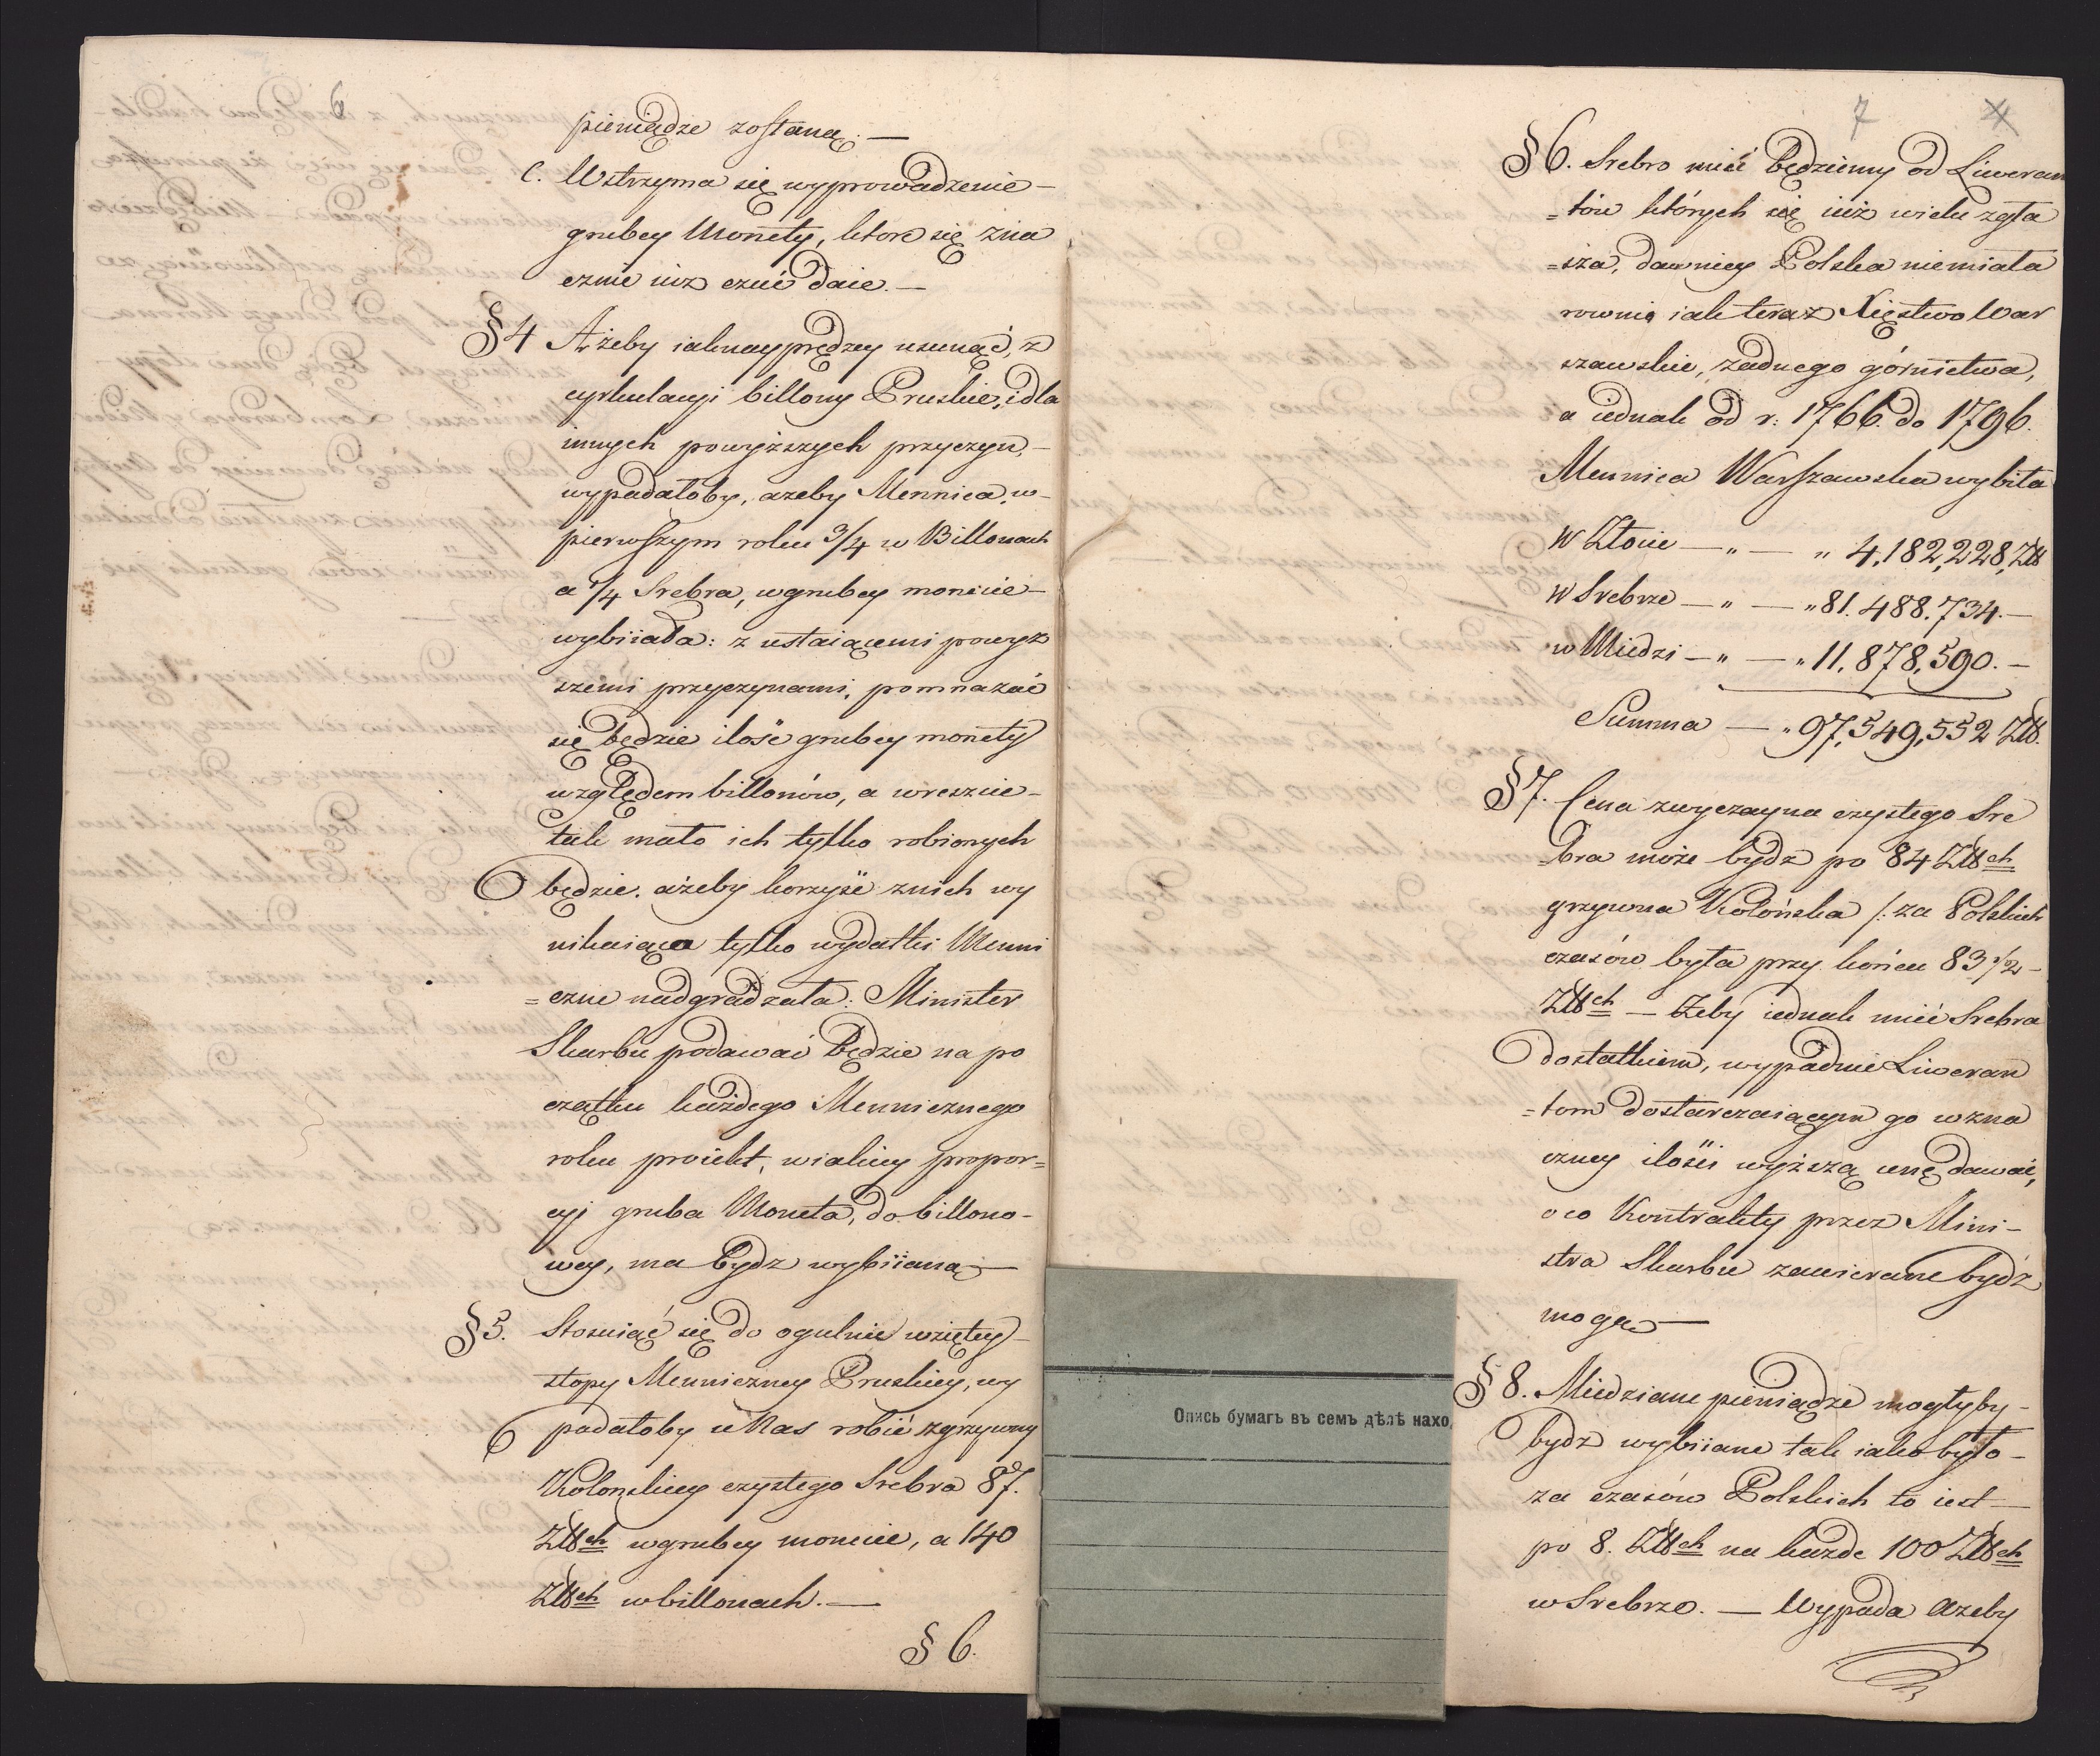 6
pieniądze zostaną. —
C. Wstrzyma się wyprowadzenie —
grubey Monety, ktore się zna
cznie iuz czuć daie. —
§ 4 Ażeby iaknayprędzey usunąć, z
cyrkulacyi billony Pruskie, i dla
innych powyższych przyczyn, —
wypadałoby, azeby Mennica, w —
pierwszym roku 3/4 w Billonach
a 1/4 Srebra, w grubey monecie —
wybiiała: z ustaiącemi powyż
szemi przyczynami, pomnażać
się będzie ilość grubey monety
względem billonów, a wreszcie —
tak mało ich tylko robionych
będzie. ażeby korzyść z nich wy
nikaiąca tylko wydatki Menni
=czne nadgradzała: Minister
Skarbu podawać będzie na po
czątku każdego Mennicznego
roku proiekt, w iakiey propor=
cyj gruba Moneta, do billono-
wey, ma bydz wybiiana —
§ 5. Stosuiąc się do ogulnie wziętey —
stopy Menniczney Pruskiey, wy
padałoby u Nas robić z grzywny
Kolonskiey czystego Srebra 87.
Złłch w grubey monecie, a 140
Złłch w billonach. —
§ 6.
7 4
§ 6. Srebro mieć będziemy od Liweran
=tów których się iuż wielu zgła
=sza, dawniey Polska niemiała
rownie iak teraz Xięstwo War
szawskie, żadnego górnictwa,
a iednak od r: 1766. do 1796.
Mennica Warszawska wybiła
w Złocie — " — " 4,182,228, Złł
w Srebrze — " — " 81.488.734. —
w Miedzi — " — " 11,878,590. —
Summa — " 97,549,552 Złł.
§ 7. Cena zwyczayna czystego Sre
=bra może bydz po 84 Złłch
grzywna Kolońska /: za Polskich
czasów była przy końcu 83 1/2 —
Złłch — Żeby iednak mieć Srebra
dostatkiem, wypadnie Liweran
=tom dostarczaiącym go w zna
czney ilości wyższą cenę dawać,
o co Kontrakty przez Mini-
stra Skarbu zawierane bydź
mogą —
§ 8. Miedziane pieniądze mogłyby —
bydz wybiiane tak iako było —
za czasów Polskich to iest —
po 8. Złłch na kazde 100 Złłch
w Srebrze. — Wypada Azeby
Опись бумагъ въ семъ дѣлѣ нахо